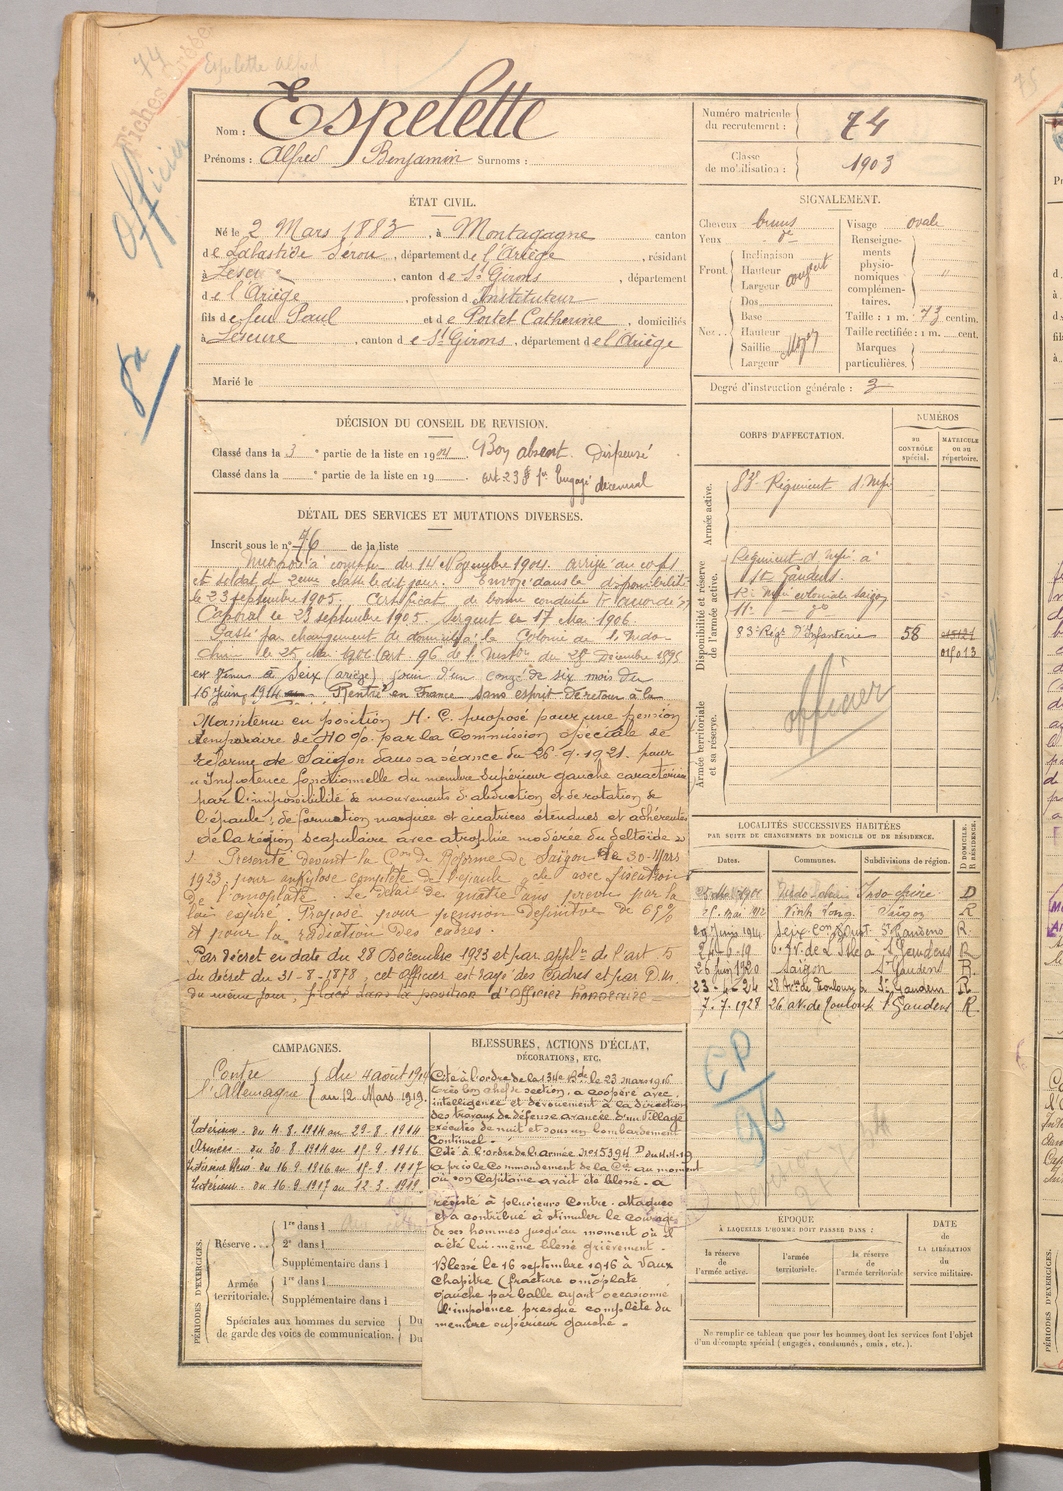 74
Fiches
Espelette Alfred
Officier
8a
Nom : Espelette
Prénoms : Alfred Benjamin Surnoms :
Numéro matricule du recrutement : 74
Classe de mobilisation : 1903
ÉTAT CIVIL.
Né le 2 Mars 1883, à Montagagne canton
de Labastide Sérou, département de l'Ariège, résidant
à Lescure, canton de St Girons, département
de l'Ariège, profession d'Instituteur
fils de feu Paul et de Portet Catherine, domiciliés
à Lescure, canton de St Girons, département de l'Ariège
Marié le
SIGNALEMENT.
Cheveux bruns
Yeux do
Front. Inclinaison
Hauteur
Largeur
Nez Dos
Base
Hauteur
Saillie
Largeur
Moyen
Visage ovale
Renseignements physionomiques complémentaires. "
Taille : 1 m. 73 centim.
Taille rectifiée : 1 m. cent.
Marques particulières.
Degré d'instruction générale : 3
DÉCISION DU CONSEIL DE REVISION.
Classé dans la 3e partie de la liste en 1904. Bon absent. Dispensé
Classé dans la e partie de la liste en 19 art 23 § 1er Engagé décennal
DÉTAIL DES SERVICES ET MUTATIONS DIVERSES.
Inscrit sous le no 76 de la liste
à compter du 14 Novembre 1904. arrivé au corps
et soldat de 2eme classe le dit jour. Envoyé dans la disponibilité
le 23 septembre 1905. Certificat de bonne conduite accordé
Caporal le 23 septembre 1905. Sergent le 17 Mai 1906.
Passé par changement de domicile à la Colonie de l'Indo-
chine le 25 Mai (art 96 de l'Instion du 28 Décembre 1895
Seix (ariège) jouir d'un congé de six mois du
16 juin 1914 Rentré en France sans esprit de retour à la
Maintenu en position H. C. proposé pour une pension
temporaire de 40 %. par la Commission spéciale de
réforme de Saïgon dans sa séance du 26.9.1921. pour
" Impotence fonctionnelle du membre supérieur gauche caractérisée
par l'impossibilité de mouvements d'abduction et de rotation de
l'épaule ; déformation marquée et cicatrices étendues et adhérentes
de la région scapulaire avec atrophie modérée du deltoïde "
Présenté devant la Con de Réforme de Saïgon le 30 Mars
1923, pour ankylose complète de l'épaule avec fixation
de l'omoplate. Le délai de quatre ans prévu par la
loi expiré. Proposé pour pension définitive de 65%
et pour la radiation des cadres.
Par Décret en date du 28 Décembre 1923 et par applon de l'art 5
du décret du 31-8-1878, cet Officier est rayé des Cadres et par D. M.
du même jour, placé dans la position d'Officier honoraire
CORPS D'AFFECTATION.
NUMÉROS
DU CONTRÔLE spécial.
MATRICULE OU au répertoire.
Armée active.
83e Régiment d'Infie
Disponibilité et réserve de l'armée active.
Régiment d'Infie à
St Gaudens.
12e Infie coloniale Saïgon
11e — do —
83e Régt d'Infanterie 58
Armée territoriale et sa réserve.
officier
LOCALITÉS SUCCESSIVES HABITÉES
PAR SUITE DE CHANGEMENTS DE DOMICILE OU DE RÉSIDENCE.
Dates. Communes. Subdivisions de région. D DOMICILE. R RÉSIDENCE.
Indo-chine D
25 mai 1912 Vinh Long Saigon R
Seix St Gaudens R.
St Gaudens R
26 Juin 1920 Saïgon St Gaudens R.
23-4-24 28 St Gaudens R
7.7.1928 26 av. de Toulouse St Gaudens R
CP
96
CAMPAGNES.
Contre l'Allemagne { du 4 août 1914
au 12 Mars 1919.
Intérieur. du 4.8.1914 au 29.8.1914
Armées du 30.8.1914 au 15.9.1916
Intérieur bless. du 16.9.1916 au 15.9.1917
Intérieur. du 16.9.1917 au 12.3.1919
BLESSURES, ACTIONS D'ÉCLAT,
DÉCORATIONS, ETC.
Cité à l'ordre de la 134e Bde le 23 mars 1916
très bon chef de section. a coopéré avec
intelligence et dévouement à la direction
des travaux de défense avancée d'un village
exécutés de nuit et sous un bombardement
continuel.
Cité à l'ordre de l'armée No 15394 D
a pris le Commandement de la Cie au moment
où son Capitaine avait été blessé. a
résisté à plusieurs contre-attaques
et a contribué à stimuler le courage
de ses hommes jusqu'au moment où il
a été lui-même blessé grièvement.
Blessé le 16 septembre 1916 à Vaux
Chapitre (fracture omoplate
gauche par balle ayant occasionné
l'impotence presque complète du
membre supérieur gauche.
PÉRIODES D'EXERCICES.
Réserve...
1re dans l
2e dans l
Supplémentaire dans l
Armée territoriale.
1re dans l
Supplémentaire dans l
Spéciales aux hommes du service
de garde des voies de communication.
Du
Du
ÉPOQUE
À LAQUELLE L'HOMME DOIT PASSER DANS :
la réserve de l'armée active.
l'armée territoriale.
la réserve de l'armée territoriale
DATE de LA LIBÉRATION du service militaire.
Ne remplir ce tableau que pour les hommes dont les services font l'objet
d'un décompte spécial (engagés, condamnés, omis, etc.).
PÉRIODES D'EXERCICES.